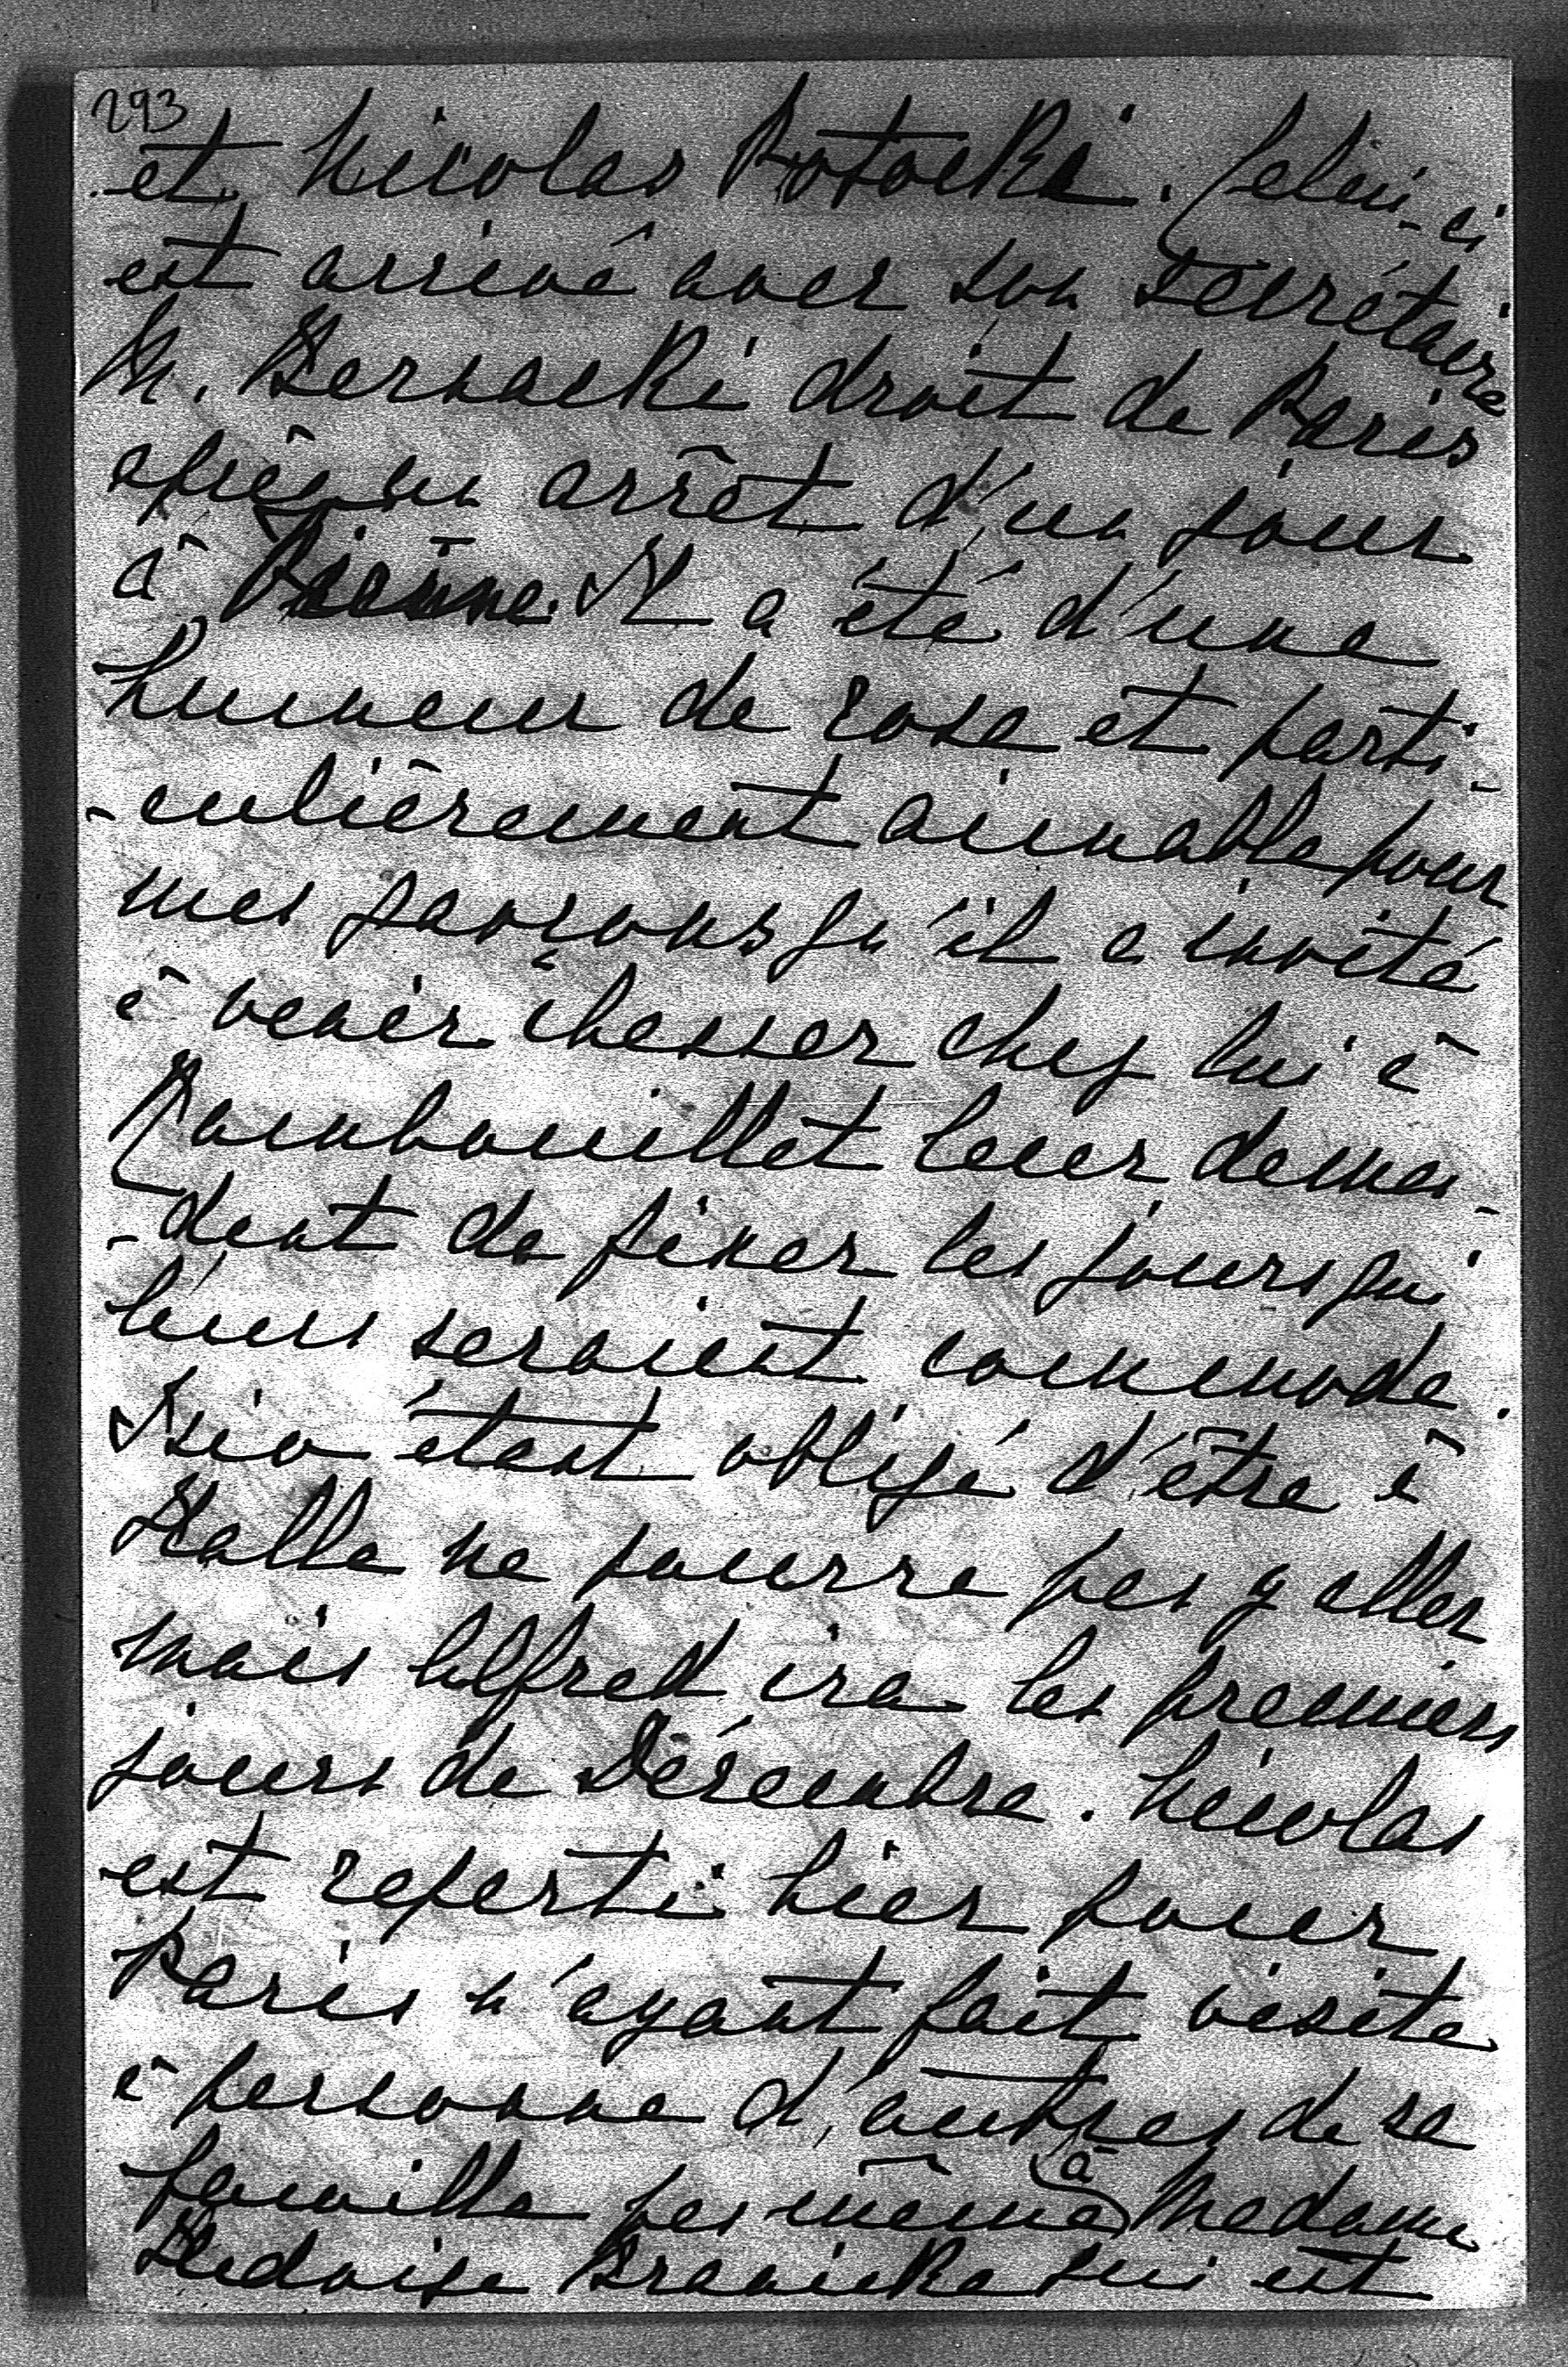 293
et Nicolas Potocki. Celui-ci
est arrivé avec son secrétaire
M. droit de Paris
après un arrêt d'un jour
à Vienne. Il a été d'une
humeur de rose et parti-
-culièrement aimable pour
mes garçons qu'il a invité
à venir chasser chez lui à
Rambouillet leur deman-
-dant de fixer les jours qui
leurs seraient commode.
étant obligé d'être à
Halle ne pourra pas y aller
mais Alfred ira les premiers
jours de Décembre. Nicolas
est reparti hier pour
Paris n'ayant fait visite
à personne d'autres de sa
famille pas même à Madame
Hedwige Branicka qui est